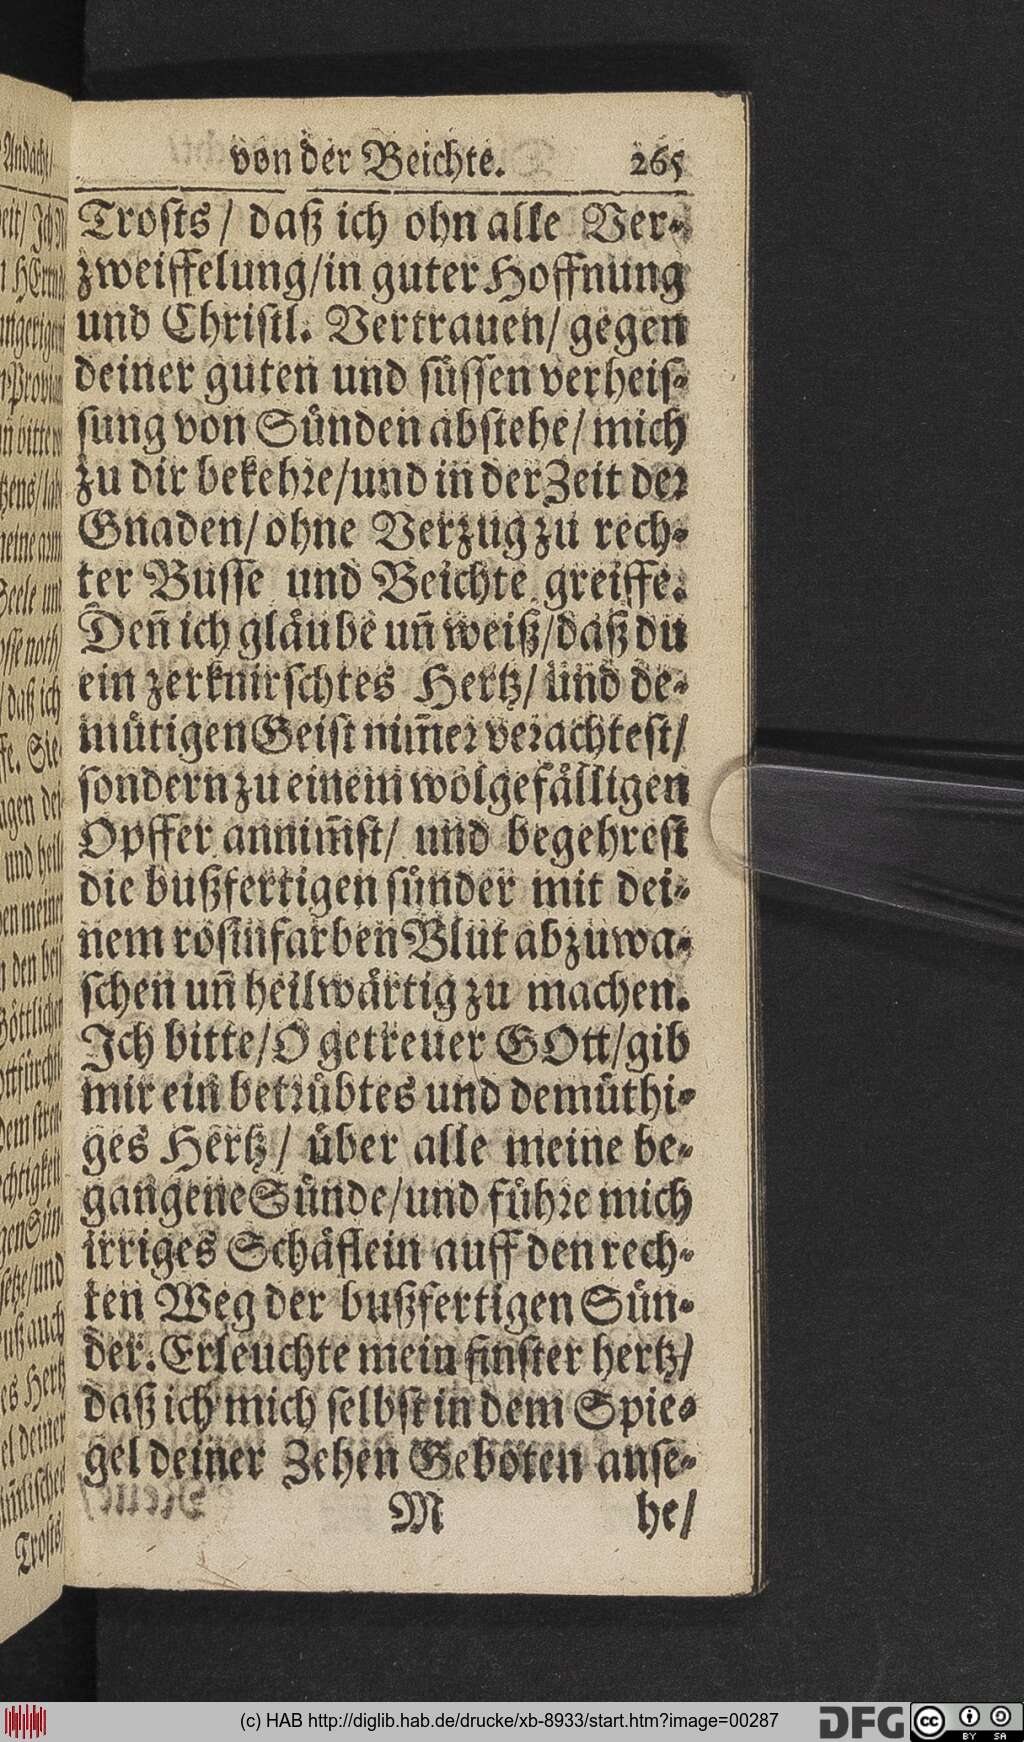 von der Beichte. 265
Trosts / daß ich ohn alle Ver-
zweiffelung/in guter Hoffnung
und Christl. Vertrauen/ gegen
deiner guten und süssen verheis-
sung von Sünden abstehe/ mich
zu dir bekehre/und in der Zeit der
Gnaden/ ohne Verzug zu rech-
ter Busse und Beichte greiffe.
Den̄ ich gläube un̄ weiß/daß du
ein zerknirschtes Hertz/ und de-
mütigen Geist nim̄er verachtest/
sondern zu einem wolgefälligen
Opffer annim̄st/ und begehrest
die bußfertigen sünder mit dei-
nem rosinfarben Blut abzuwa-
schen un̄ heilwärtig zu machen.
Ich bitte/O getreuer GOtt/gib
mir ein betrübtes und demüthi-
ges Hertz / über alle meine be-
gangene Sünde/und führe mich
irriges Schäflein auff den rech-
ten Weg der bußfertigen Sün-
der. Erleuchte mein finster hertz/
daß ich mich selbst in dem Spie-
gel deiner Zehen Geboten anse-
M he/
(c) HAB http://diglib.hab.de/drucke/xb-8933/start.htm?image=00287
DFG
cc BY SA